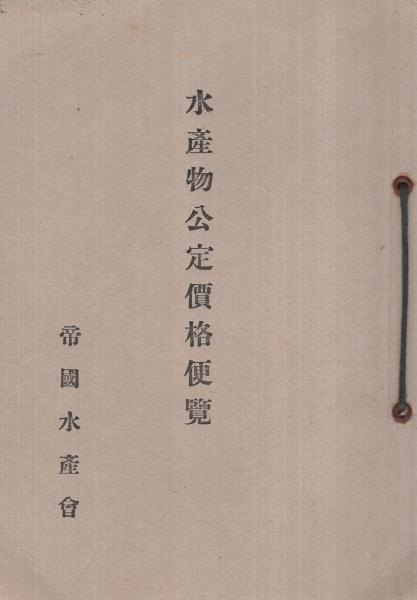 水產物公定價格便覽
帝國水產會